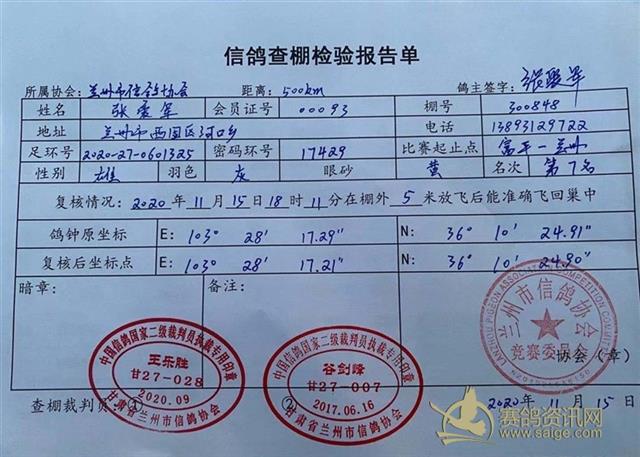 信鸽查棚检验报告单
所属协会: 兰州市信鸽协会 距离: 500km 鸽主签字:
姓名 张爱军 会员证号 00093 棚号 300848
地址 兰州市西固区河口乡 电话 13893129722
足环号 2020-27-0601325 密码环号 17429 比赛起止点 富平一兰州
性别 雄 羽色 灰 眼砂 黄 名次 第7名
复核情况: 2020 年 11 月 15 日 18 时 11 分在棚外 5 米放飞后能准确飞回巢中
鸽钟原坐标 E: 103° 28' 17.29" N: 36° 10' 24.91"
复核后坐标点 E: 103° 28' 17.21" N: 36° 10' 24.90"
暗章: 备注:
中国信鸽国家二级裁判员执裁专用印章
王乐胜
甘27-028
2020.09
甘肃省兰州市信鸽协会
中国信鸽国家二级裁判员执裁专用印章
谷剑峰
甘27-007
2017.06.16
甘肃省兰州市信鸽协会
LANZHOU PIGEON ASSOCIATION COMPETITION COMMITTEE
兰州市信鸽协会
竞赛委员会
协会(章)
查棚裁判员: ① ②
2020 年 11 月 15 日
赛鸽资讯网
www.saige.com